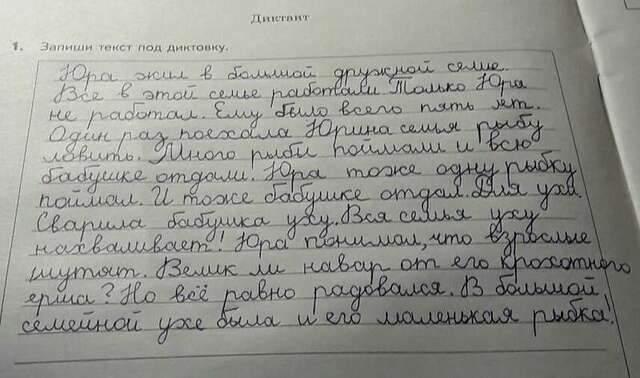 Диктант
1. Запиши текст под диктовку.
Юра жил в большой дружной семье.
Все в этой семье работали. Только Юра
не работал. Ему было всего пять лет.
Один раз поехала Юрина семья рыбу
ловить. Много рыбы поймали и всю
бабушке отдали. Юра тоже одну рыбку
поймал. И тоже бабушке отдал. Для ухи.
Сварила бабушка уху. Вся семья уху
нахваливает! Юра понимал, что взрослые
шутят. Велик ли навар от его крохотного
ерша? Но всё равно радовался. В большой
семейной ухе была и его маленькая рыбка!